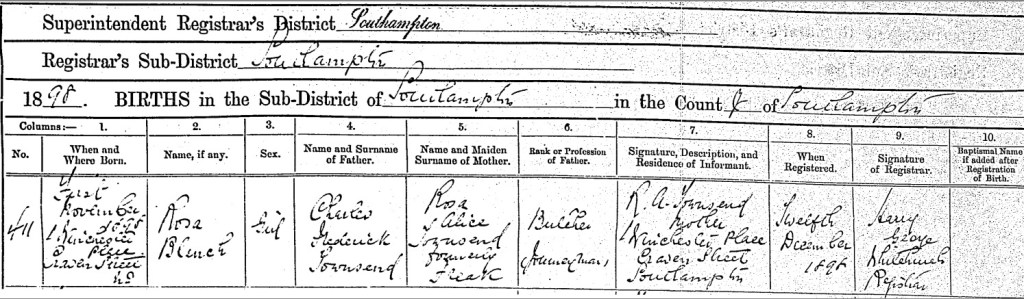 Superintendent Registrar's District Southampton
Registrar's Sub-District Southampton
1898. BIRTHS in the Sub-District of Southampton in the County of Southampton
Columns:— 1. 2. 3. 4. 5. 6. 7. 8. 9. 10.
No. When and Where Born. Name, if any. Sex. Name and Surname of Father. Name and Maiden Surname of Mother. Rank or Profession of Father. Signature, Description, and Residence of Informant. When Registered. Signature of Registrar. Baptismal Name if added after Registration of Birth.
411
First
November
1898
1 Winchester
Place
Craven Street
Rosa
Blench
Girl
Charles
Frederick
Townsend
Rosa
Alice
Townsend
formerly
Freak
Butcher
Journeyman
R. A. Townsend
Mother
1 Winchester Place
Craven Street
Southampton
Twelfth
December
1898
Harry
George
Whitchurch
Registrar